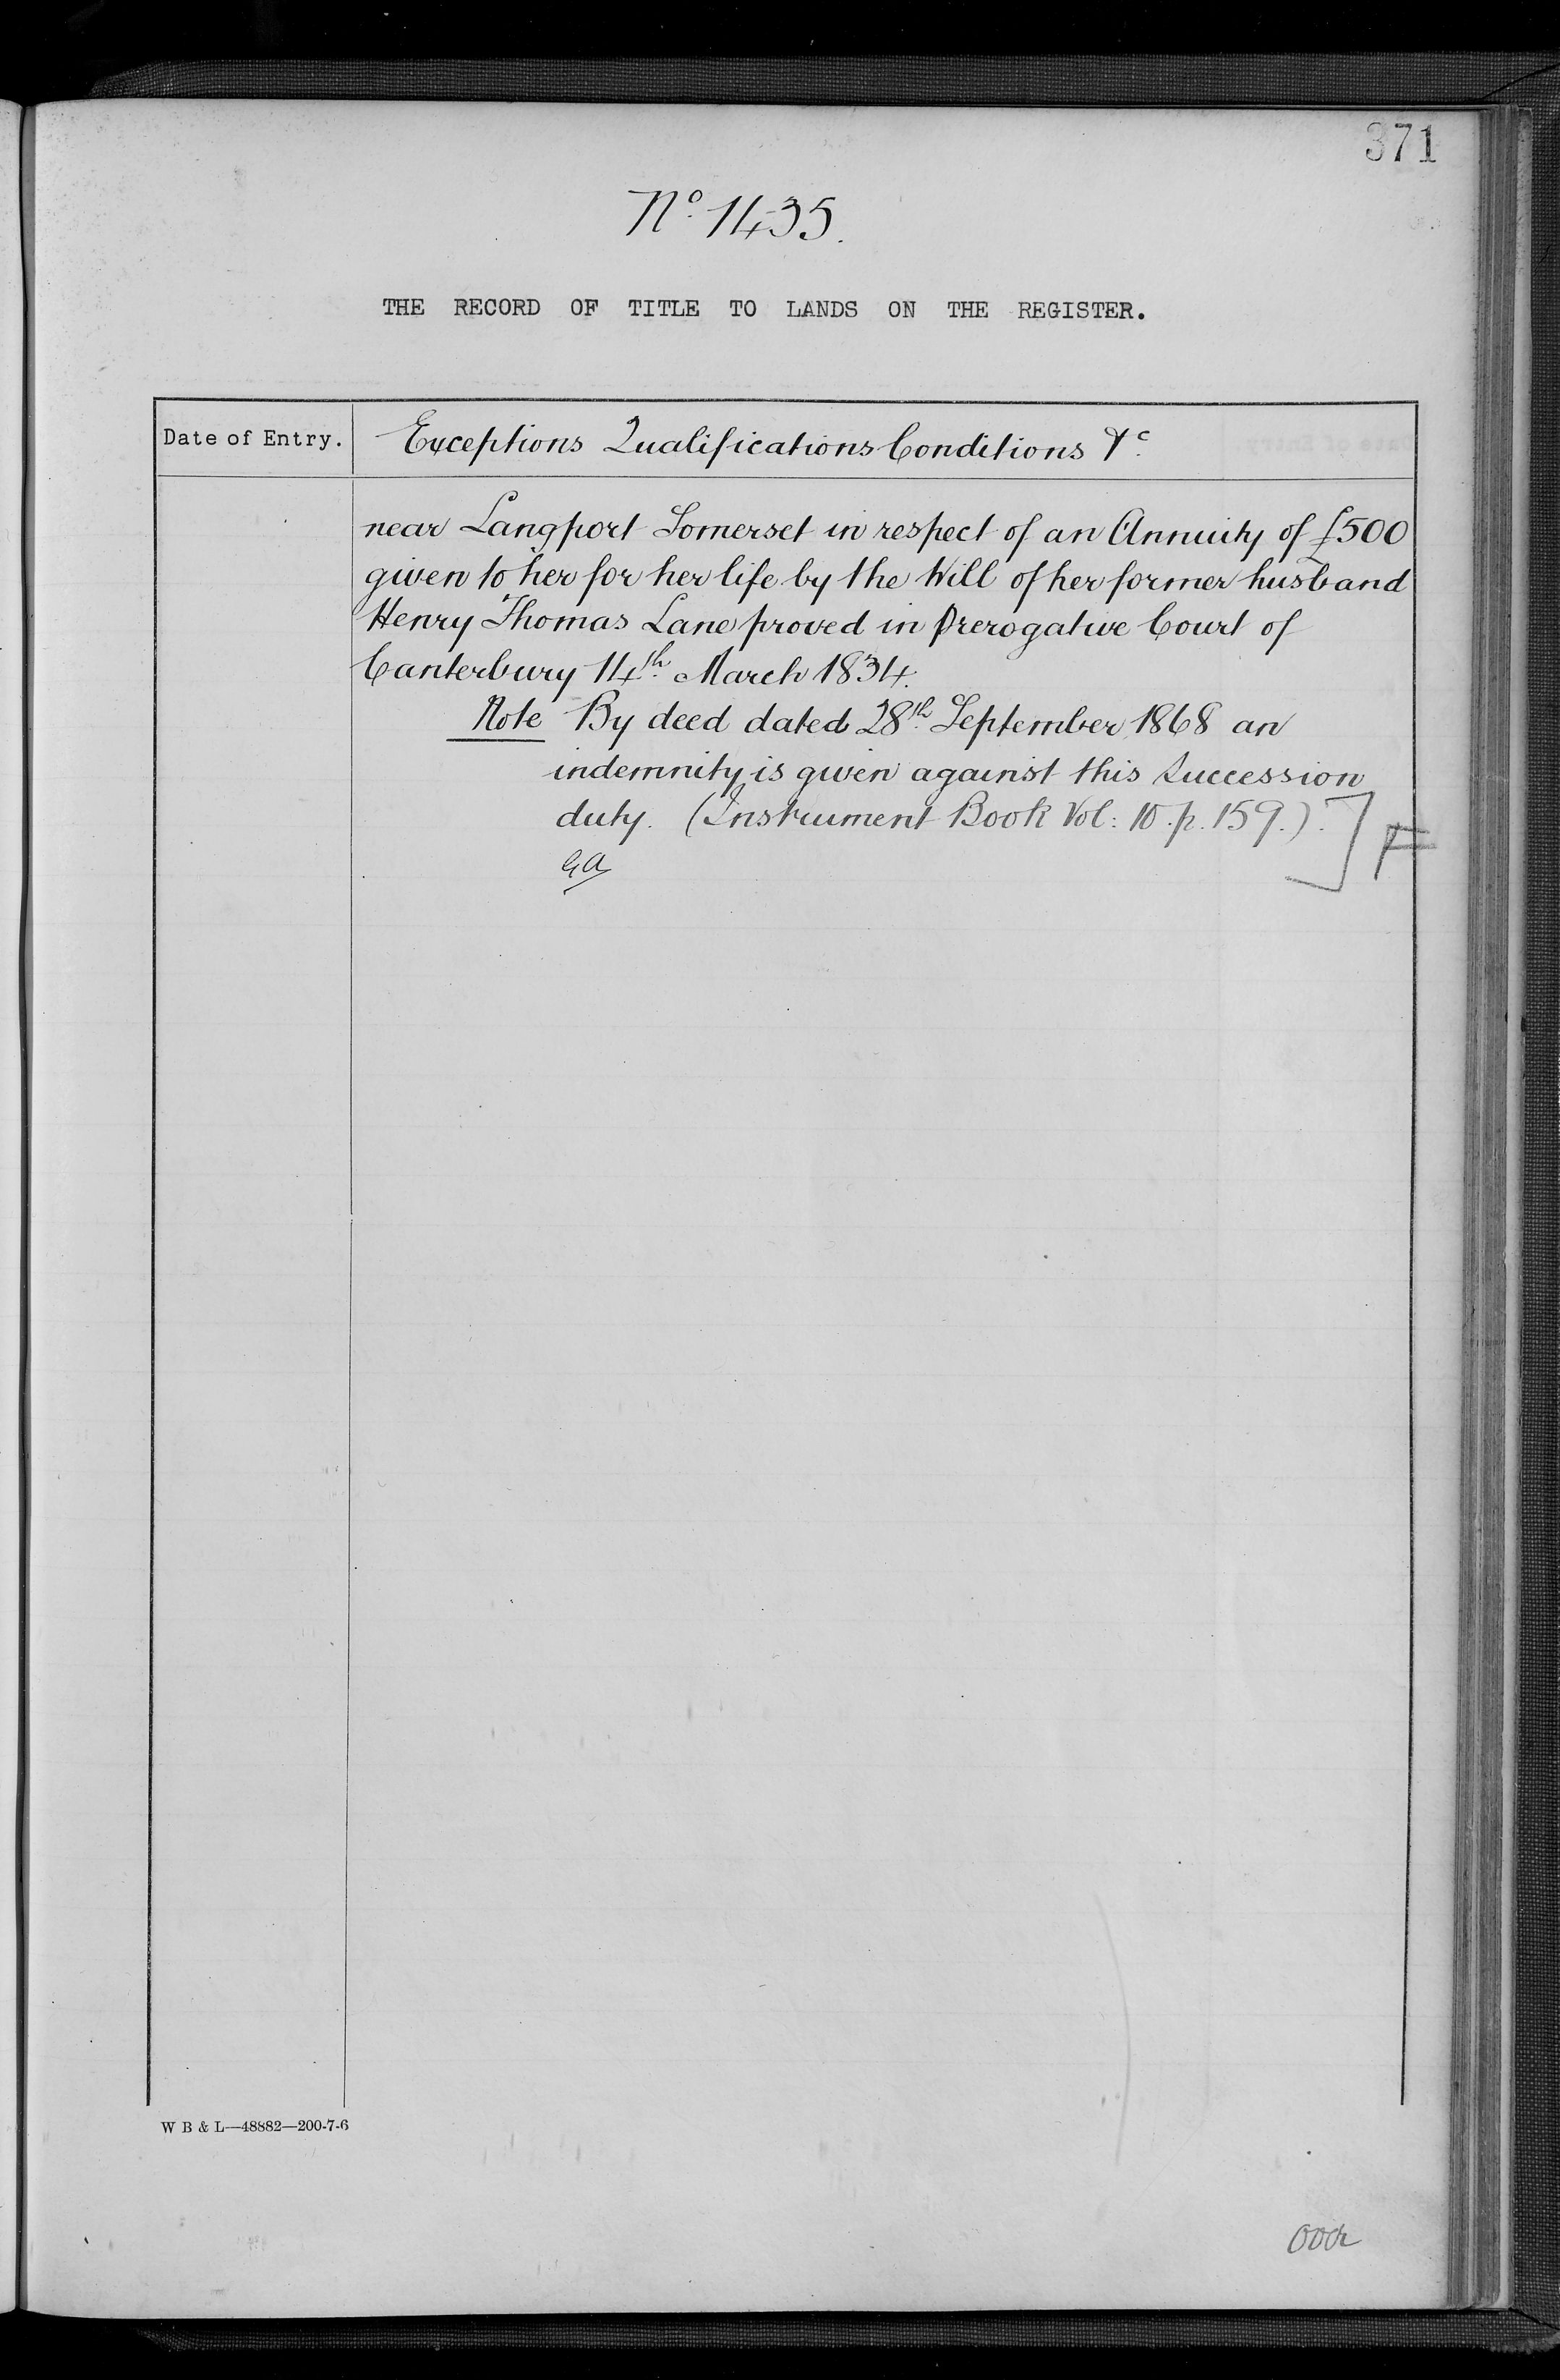 371
No. 1435.
THE RECORD OF TITLE TO LANDS ON THE REGISTER.
Date of Entry.
Exceptions Qualifications Conditions &c.
near Langport Somerset in respect of an Annuity of £500
given to her for her life by the Will of her former husband
Henry Thomas Lane proved in Prerogative Court of
Canterbury 14th. March 1834.
Note By deed dated 28th. September 1868 an
indemnity is given against this Succession
duty. (Instrument Book Vol: 10. p. 159.).]
W B & L—48882—200-7-6